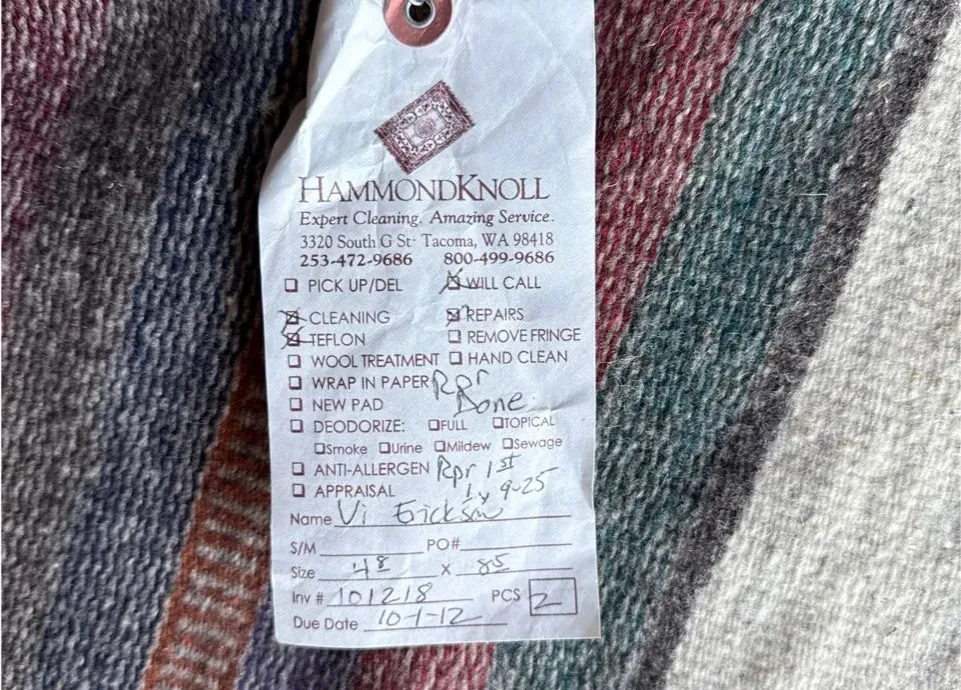 HAMMONDKNOLL
Expert Cleaning. Amazing Service.
3320 South G St· Tacoma, WA 98418
253-472-9686 800-499-9686
PICK UP/DEL WILL CALL
CLEANING REPAIRS
TEFLON REMOVE FRINGE
WOOL TREATMENT HAND CLEAN
WRAP IN PAPER Rpr
NEW PAD Done
DEODORIZE: FULL TOPICAL
Smoke Urine Mildew Sewage
ANTI-ALLERGEN Rpr 1st
APPRAISAL 9-25
Name Vi Erickson
S/M PO#
Size 48 X 85
Inv # 101218 PCS 2
Due Date 10-1-12